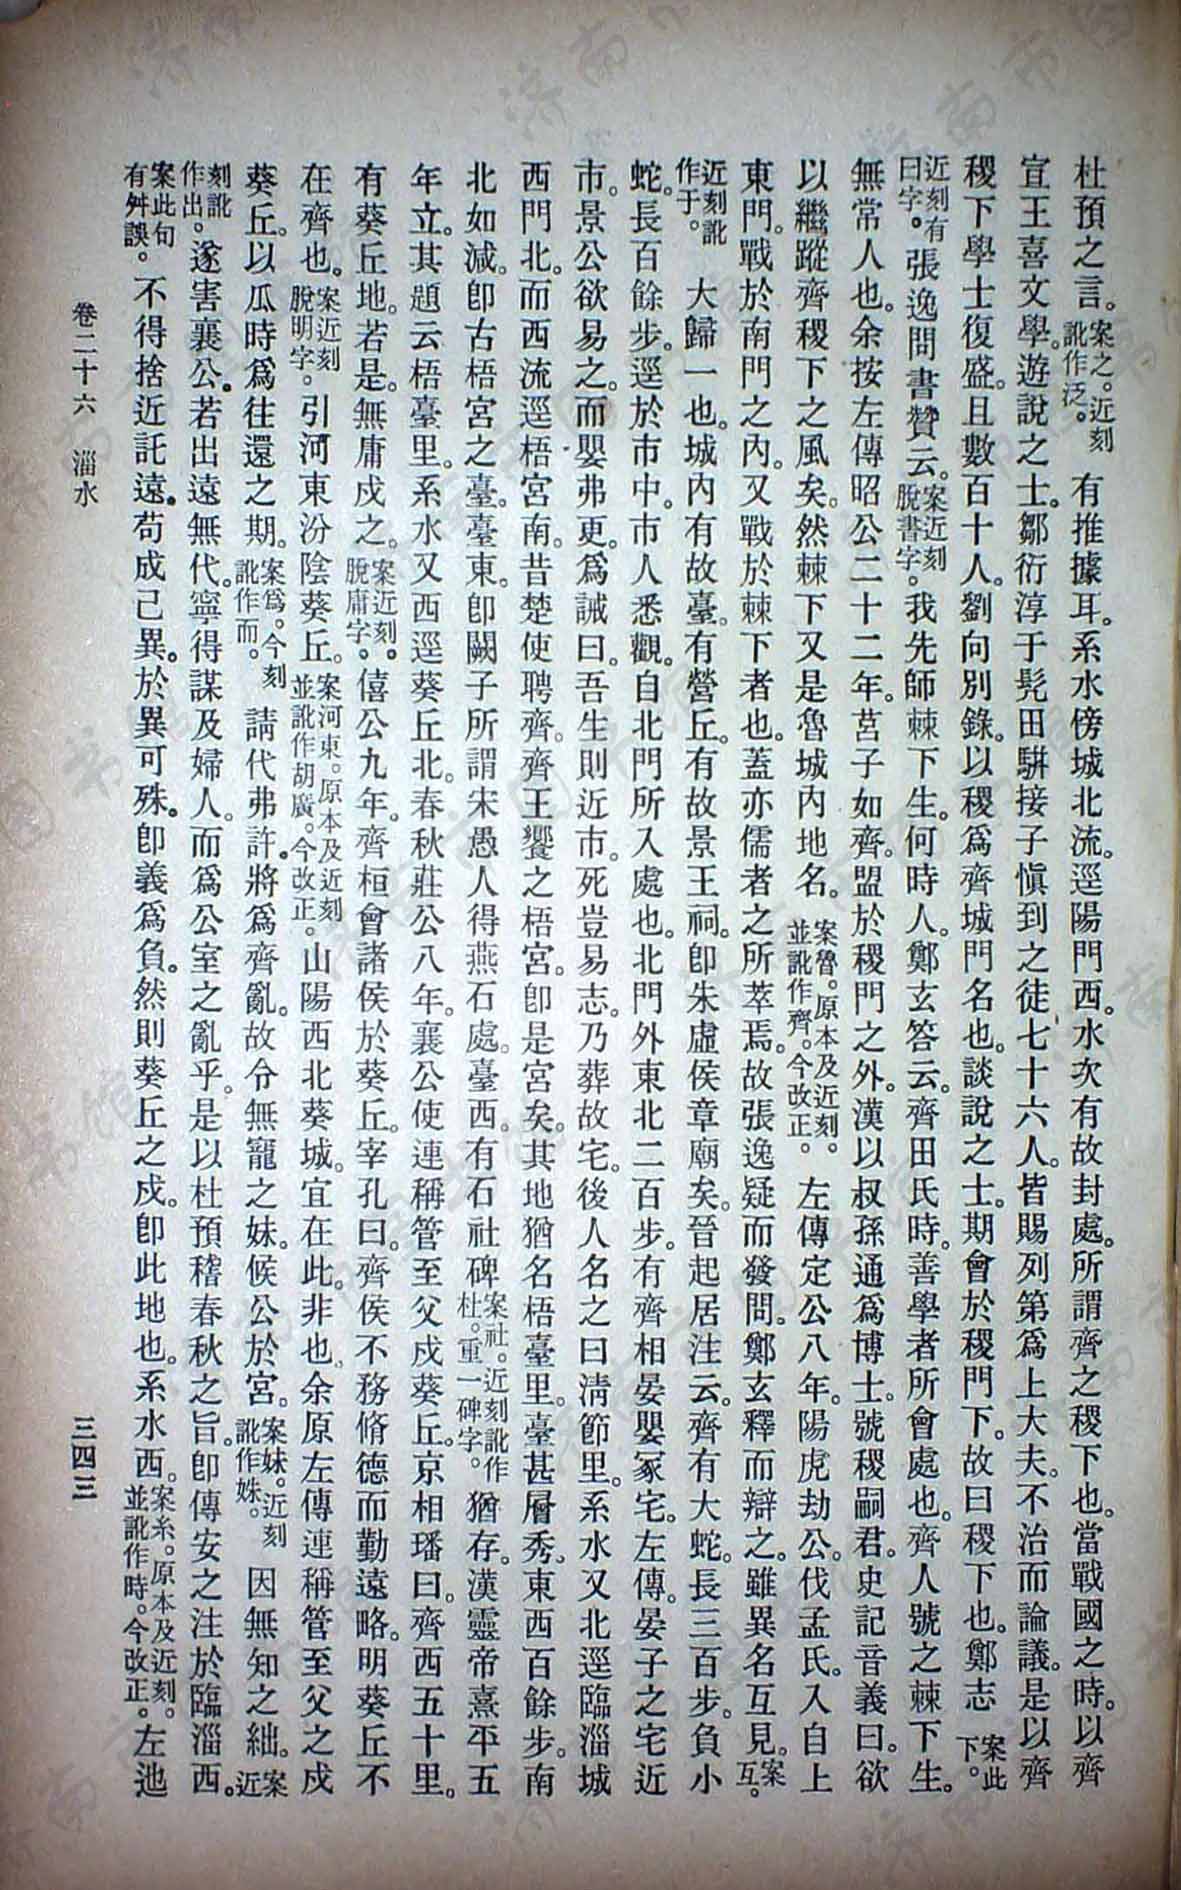 杜預之言。案之。近刻訛作泛。有推據耳。系水傍城北流。逕陽門西。水次有故封處。所謂齊之稷下也。當戰國之時。以齊
宣王喜文學。遊說之士。鄒衍淳于髡田駢接子慎到之徒七十六人。皆賜列第爲上大夫。不治而論議。是以齊
稷下學士復盛。且數百十人。劉向別錄。以稷爲齊城門名也。談說之士。期會於稷門下。故曰稷下也。鄭志案此下。
近刻有曰字。張逸問書贊云。案近刻脫書字。我先師棘下生。何時人。鄭玄答云。齊田氏時。善學者所會處也。齊人號之棘下生。
無常人也。余按左傳昭公二十二年。莒子如齊。盟於稷門之外。漢以叔孫通爲博士。號稷嗣君。史記音義曰。欲
以繼蹤齊稷下之風矣。然棘下又是魯城內地名。案魯。原本及近刻並訛作齊。今改正。左傳定公八年。陽虎劫公。伐孟氏。入自上
東門。戰於南門之內。又戰於棘下者也。蓋亦儒者之所萃焉。故張逸疑而發問。鄭玄釋而辯之。雖異名互見。案互。
近刻訛作于。大歸一也。城內有故臺。有營丘。有故景王祠。卽朱虛侯章廟矣。晉起居注云。齊有大蛇。長三百步。負小
蛇。長百餘步。逕於市中。市人悉觀。自北門所入處也。北門外東北二百步。有齊相晏嬰冢宅。左傳。晏子之宅近
市。景公欲易之。而嬰弗更。爲誡曰。吾生則近市。死豈易志。乃葬故宅。後人名之曰清節里。系水又北逕臨淄城
西門北。而西流逕梧宮南。昔楚使聘齊。齊王饗之梧宮。卽是宮矣。其地猶名梧臺里。臺甚層秀。東西百餘步。南
北如減。卽古梧宮之臺。臺東。卽闕子所謂宋愚人得燕石處。臺西。有石社碑案社。近刻訛作杜。重一碑字。猶存。漢靈帝熹平五
年立。其題云梧臺里。系水又西逕葵丘北。春秋莊公八年。襄公使連稱管至父戍葵丘。京相璠曰。齊西五十里。
有葵丘地。若是。無庸戍之。案近刻。脫庸字。僖公九年。齊桓會諸侯於葵丘。宰孔曰。齊侯不務脩德而勤遠略。明葵丘不
在齊也。案近刻脫明字。引河東汾陰葵丘。案河東。原本及近刻並訛作胡廣。今改正。山陽西北葵城。宜在此。非也。余原左傳連稱管至父之戍
葵丘。以瓜時爲往還之期。案爲。今刻訛作而。請代弗許。將爲齊亂。故令無寵之妹。候公於宮。案妹。近刻訛作姝。因無知之絀。案近
刻訛作出。遂害襄公。若出遠無代。寧得謀及婦人。而爲公室之亂乎。是以杜預稽春秋之旨。卽傳安之注於臨淄西。
案此句有舛誤。不得捨近託遠。苟成己異。於異可殊。卽義爲負。然則葵丘之戍。卽此地也。系水西。案系。原本及近刻。並訛作時。今改正。左池
卷二十六 淄水
三四三